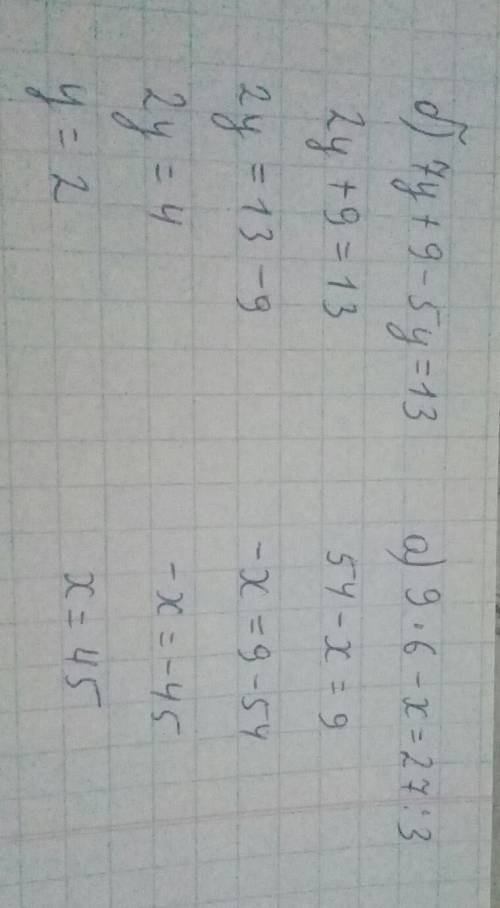 б) 7y + 9 - 5y = 13
2y + 9 = 13
2y = 13 - 9
2y = 4
y = 2
а) 9 · 6 - x = 27 : 3
54 - x = 9
-x = 9 - 54
-x = -45
x = 45